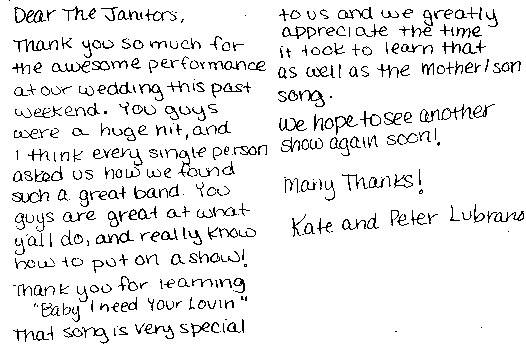 Dear The Janitors,
Thank you so much for
the awesome performance
at our wedding this past
weekend. You guys
were a huge hit, and
I think every single person
asked us how we found
such a great band. You
guys are great at what
y'all do, and really know
how to put on a show!
Thank you for learning
"Baby I need Your Lovin"
That song is very special
to us and we greatly
appreciate the time
it took to learn that
as well as the Mother/son
song.
We hope to see another
show again soon!
Many Thanks!
Kate and Peter Lubrano